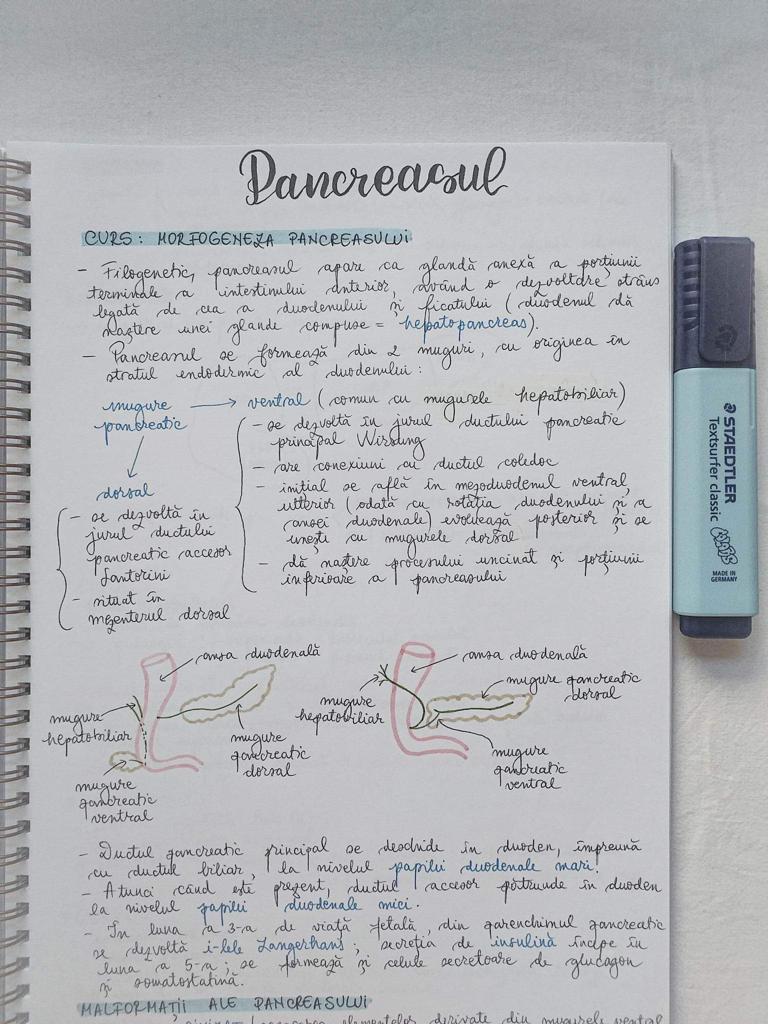 Pancreasul
CURS: MORFOGENEZA PANCREASULUI
- Filogenetic, pancreasul apare ca glandă anexă a porțiunii
terminale a intestinului anterior, având o dezvoltare strâns
legată de cea a duodenului și ficatului (duodenul dă
naștere unei glande compuse = hepatopancreas).
- Pancreasul se formează din 2 muguri, cu originea în
stratul endodermic al duodenului:
mugure → ventral (comun cu mugurele hepatobiliar)
pancreatic
- se dezvoltă în jurul ductului pancreatic
principal Wirsung
- are conexiuni cu ductul coledoc
- inițial se află în mezoduodenul ventral,
ulterior (odată cu rotația duodenului și a
ansei duodenale) evoluează posterior și se
unește cu mugurele dorsal
- dă naștere procesului uncinat și porțiunii
inferioare a pancreasului
dorsal
- se dezvoltă în
jurul ductului
pancreatic accesor
Santorini
- situat în
mezenterul dorsal
ansa duodenală
mugure
hepatobiliar
mugure
pancreatic
dorsal
mugure
pancreatic
ventral
ansa duodenală
mugure pancreatic
dorsal
mugure
hepatobiliar
mugure
pancreatic
ventral
- Ductul pancreatic principal se deschide în duoden, împreună
cu ductul biliar, la nivelul papilei duodenale mari.
- Atunci când este prezent, ductul accesor pătrunde în duoden
la nivelul papilei duodenale mici.
- În luna a 3-a de viață fetală, din parenchimul pancreatic
se dezvoltă i-lele Langerhans; secreția de insulină începe în
luna a 5-a; se formează și celule secretoare de glucagon
și somatostatină.
MALFORMAȚII ALE PANCREASULUI
elementelor derivate din mugurele ventral
STAEDTLER
Textsurfer classic
MADE IN
GERMANY